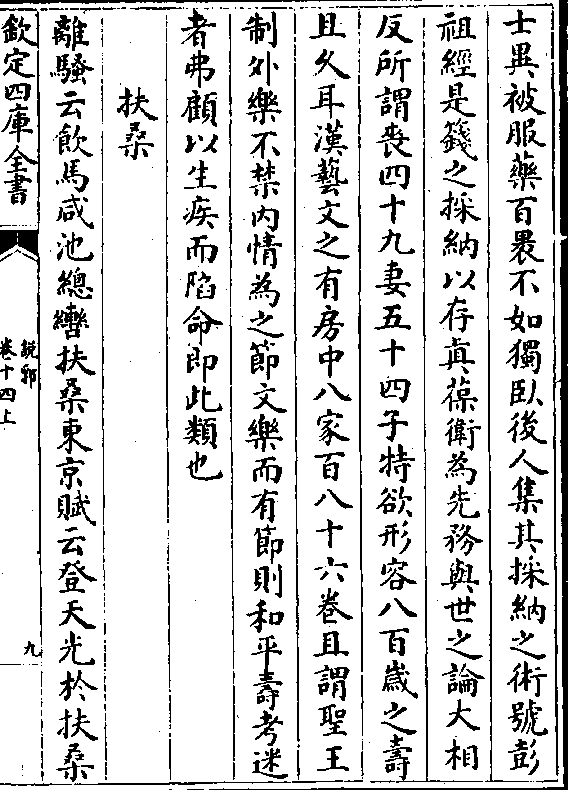 士異被服藥百裹不如獨臥後人集其採納之術號彭
祖經是籛之採納以存真葆衛為先務與世之論大相
反所謂喪四十九妻五十四子特欲形容八百歲之壽
且久耳漢藝文之有房中八家百八十六卷且謂聖王
制外樂不禁內情為之節文樂而有節則和平壽考迷
者弗顧以生疾而隕命即此類也
扶桑
離騷云飲馬咸池總轡扶桑東京賦云登天光於扶桑
欽定四庫全書
說郛
卷十四上
九